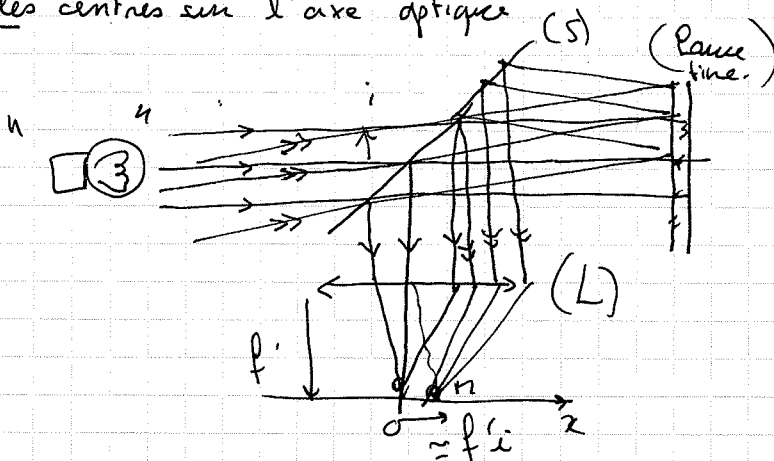 les centres sur l'axe optique
(S)
(Lame
fine.)
n
n
i
(L)
f'
M
O
x
≃ f'i